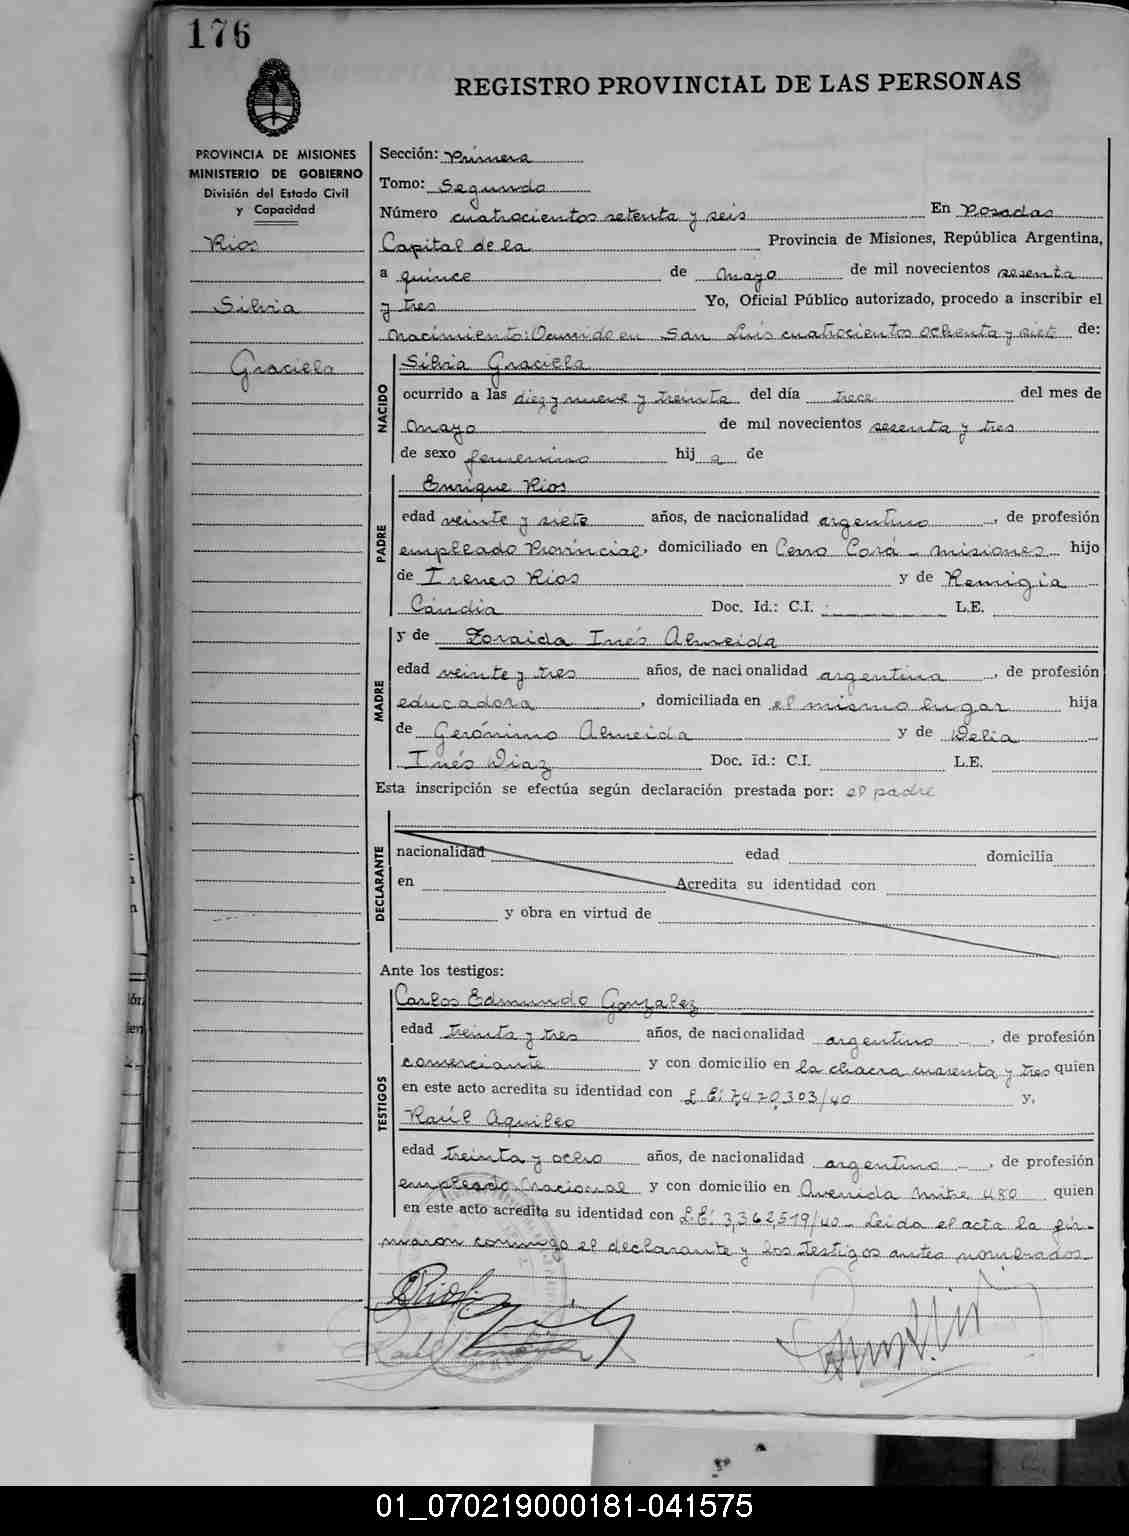 176
REGISTRO PROVINCIAL DE LAS PERSONAS
PROVINCIA DE MISIONES
MINISTERIO DE GOBIERNO
División del Estado Civil
y Capacidad
Rios
Silvia
Graciela
Sección: Primera
Tomo: Segundo
Número cuatrocientos setenta y seis En Posadas
Capital de la Provincia de Misiones, República Argentina,
a quince de mayo de mil novecientos sesenta
y tres Yo, Oficial Público autorizado, procedo a inscribir el
nacimiento: Ocurrido en San Luis cuatrocientos ochenta y siete de:
NACIDO
Silvia Graciela
ocurrido a las diez y nueve y treinta del día trece del mes de
mayo de mil novecientos sesenta y tres
de sexo femenino hij a de
PADRE
Enrique Rios
edad veinte y siete años, de nacionalidad argentino, de profesión
empleado Provincial, domiciliado en Cerro Corá - misiones hijo
de Ireneo Rios y de Remigia
Cándia Doc. Id.: C.I. L.E.
MADRE
y de Zoraida Inés Almeida
edad veinte y tres años, de nacionalidad argentina, de profesión
educadora, domiciliada en el mismo lugar hija
de Gerónimo Almeida y de Delia
Inés Diaz Doc. id.: C.I. L.E.
Esta inscripción se efectúa según declaración prestada por: el padre
DECLARANTE
nacionalidad edad domicilia
en Acredita su identidad con
y obra en virtud de
Ante los testigos:
TESTIGOS
Carlos Edmundo Gonzalez
edad treinta y tres años, de nacionalidad argentino, de profesión
comerciante y con domicilio en la chacra cuarenta y tres quien
en este acto acredita su identidad con L.E: 7,470,303/40 y,
Raúl Aquileo
edad treinta y ocho años, de nacionalidad argentino, de profesión
empleado Nacional y con domicilio en Avenida Mitre 480 quien
en este acto acredita su identidad con L.E: 3,362,519/40 - Leida el acta la fir-
maron conmigo el declarante y los testigos antes nombrados
01_070219000181-041575